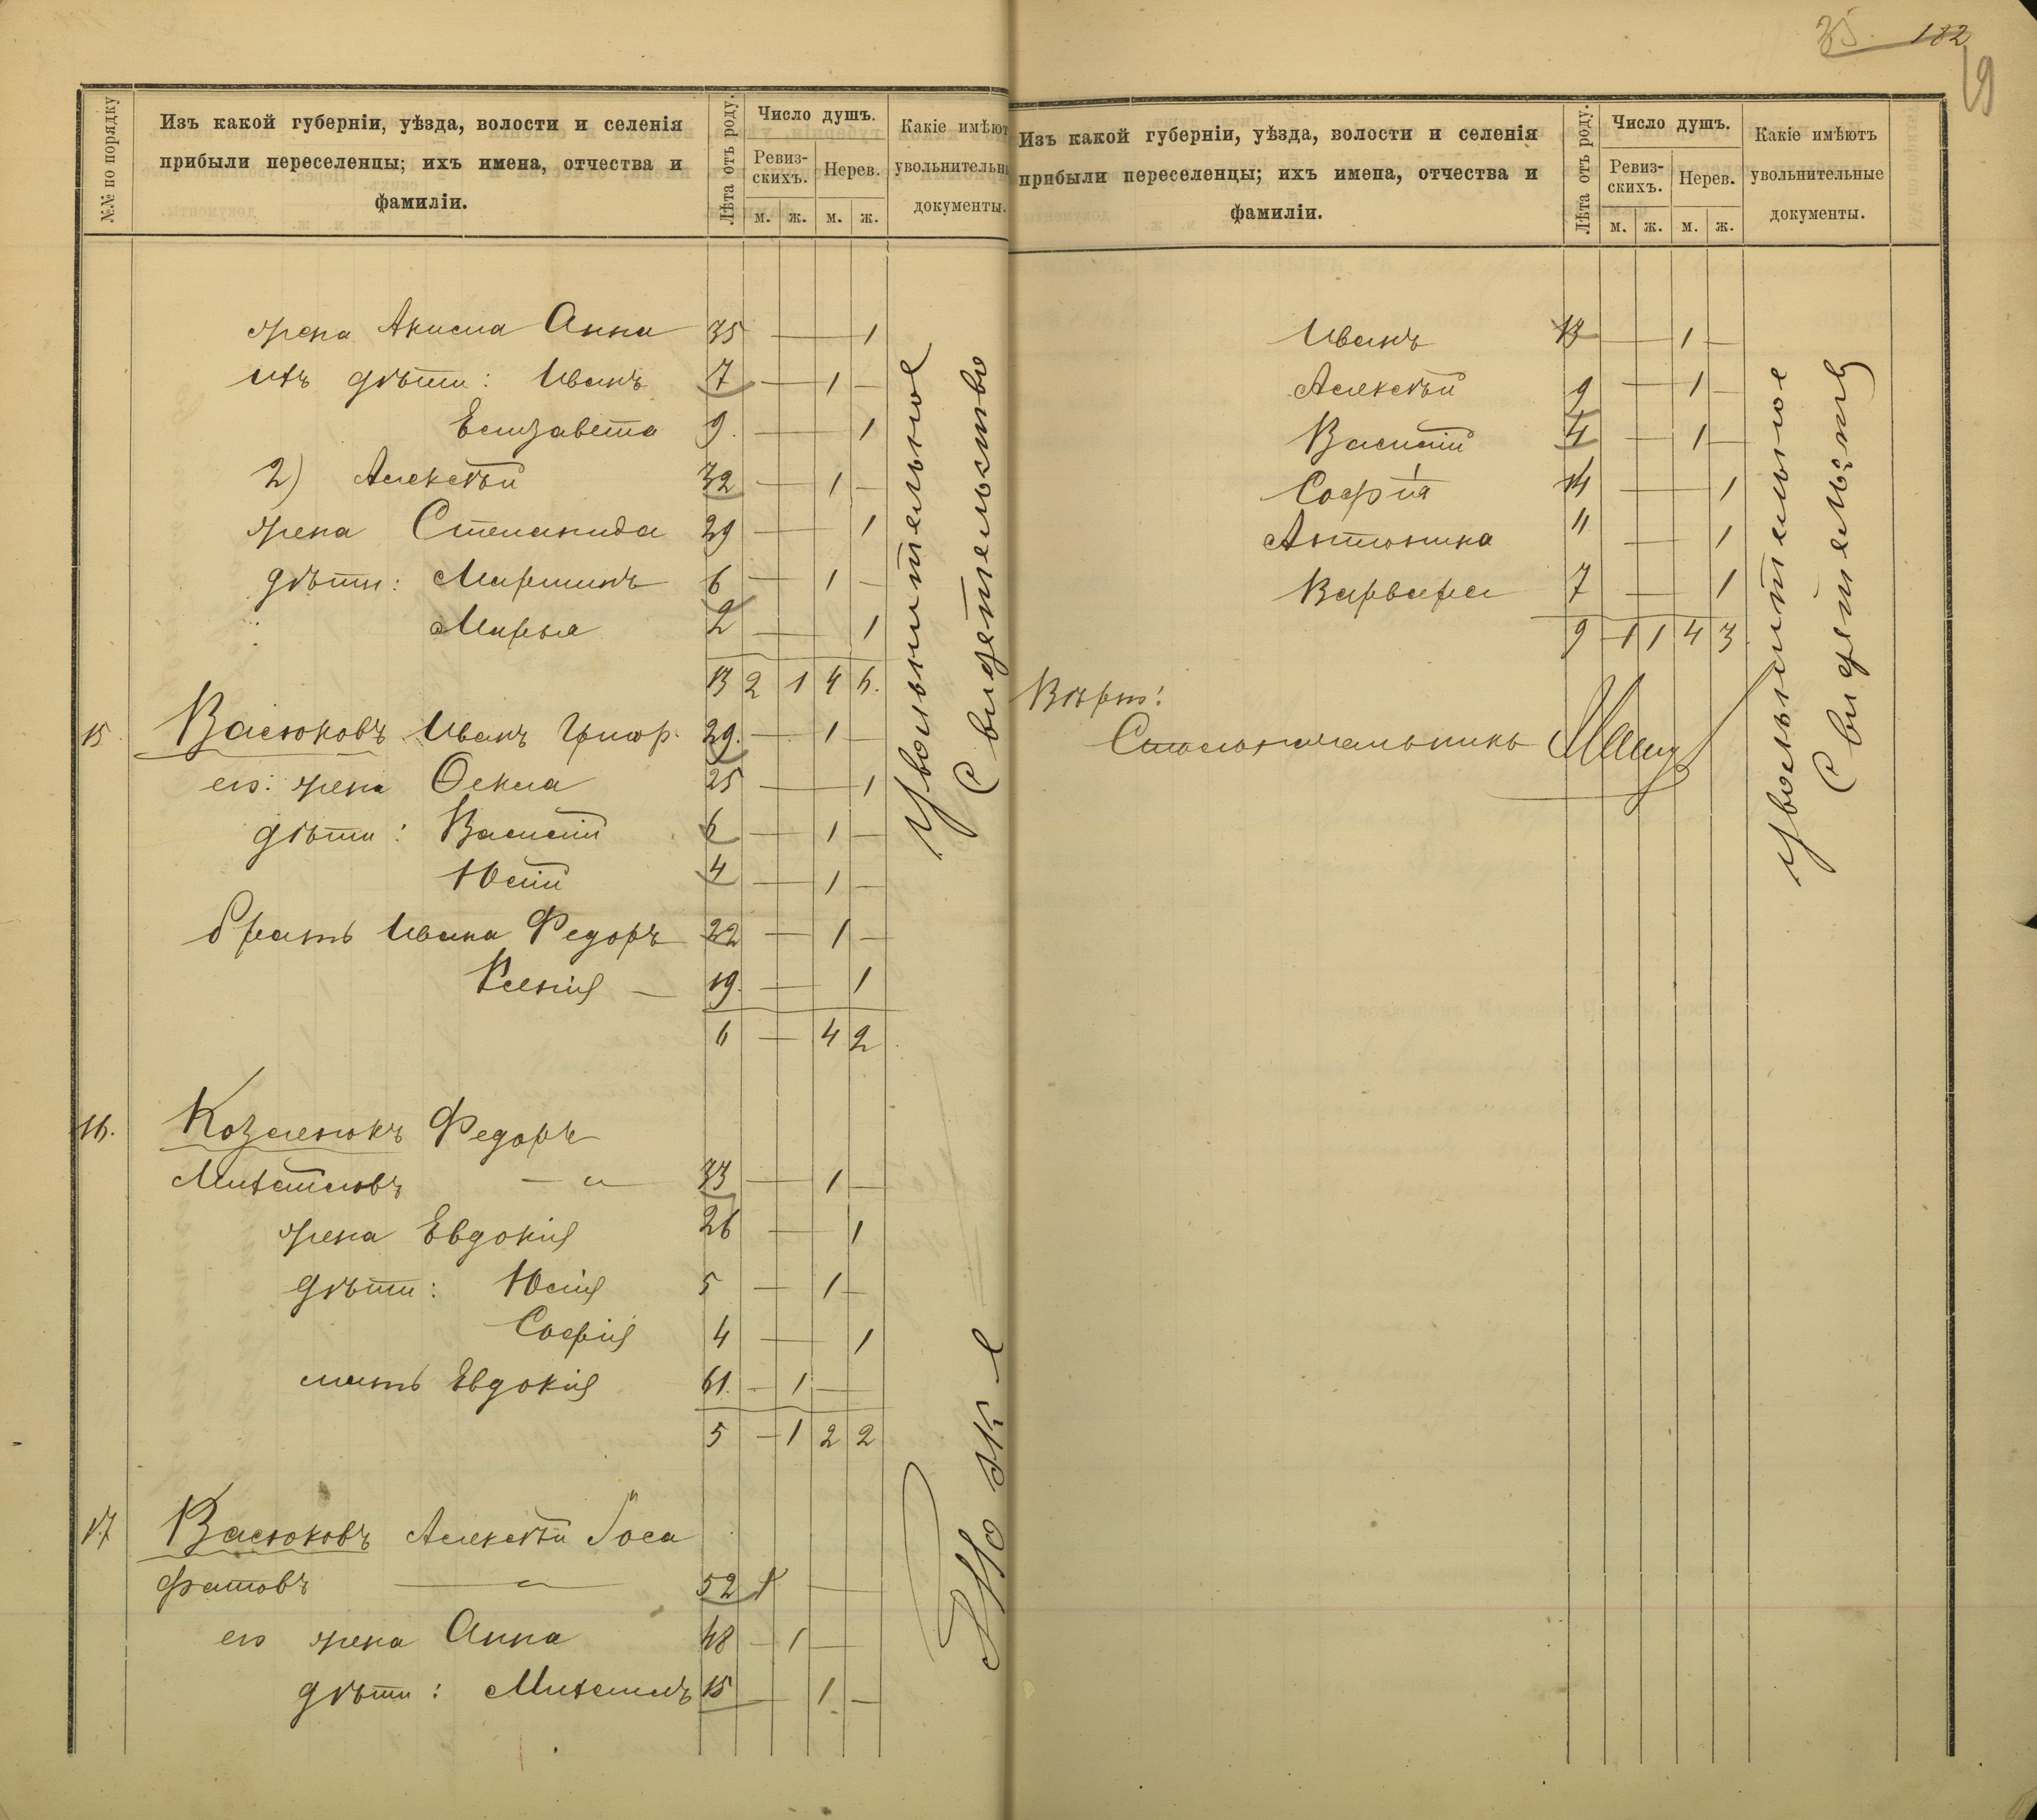 35. 182
19
№№ по порядку
Изъ какой губерніи, уѣзда, волости и селенія
прибыли переселенцы; ихъ имена, отчества и
фамиліи.
Лѣта отъ роду.
Число душъ.
Ревиз-
скихъ.
Нерев.
м. ж. м. ж.
Какіе имѣют
увольнительны
документы.
жена Акима Анна 35 — 1
ихъ дѣти: Иванъ 7 — 1 —
Елизавета 9. — 1
2) Алексѣй 32 — 1 —
жена Степанида 29 — 1
дѣти: Мартинъ 6 — 1 —
Марья 2 — 1
13 2 1 4 6.
15 Васюковъ Иванъ Григор. 29. — 1 —
его: жена Фекла 25 — 1
дѣти: Василій 6 — 1 —
Юлій 4 — 1 —
братъ Ивана Федоръ 22 — 1 —
Ксенія — 19. — 1
6 — 4 2
16. Козленокъ Федоръ
Михайловъ — " — 33 — 1 —
жена Евдокія 26 — 1
дѣти: Юлій 5 — 1 —
Софія 4 — 1
мать Евдокія 61. — 1 —
5 — 1 2 2
17 Васюковъ Алексѣй Іоса
фатовъ — " — 52 1 —
его жена Анна 48 — 1 —
дѣти: Михаилъ 15 — 1 —
увольнительное
свидетельство
Тоже
Изъ какой губерніи, уѣзда, волости и селенія
прибыли переселенцы; ихъ имена, отчества и
фамиліи.
Лѣта отъ роду.
Число душъ.
Ревиз-
скихъ.
Нерев.
м. ж. м. ж.
Какіе имѣютъ
увольнительные
документы.
Иванъ 13 — 1 —
Алексѣй 9 — 1 —
Василій 4 — 1 —
Софія 14 — 1
Антонина 11 — 1
Варвара 7 — 1
9 1 1 4 3
Вѣрно:
Столоначальникъ
увольнительное
свидетельство